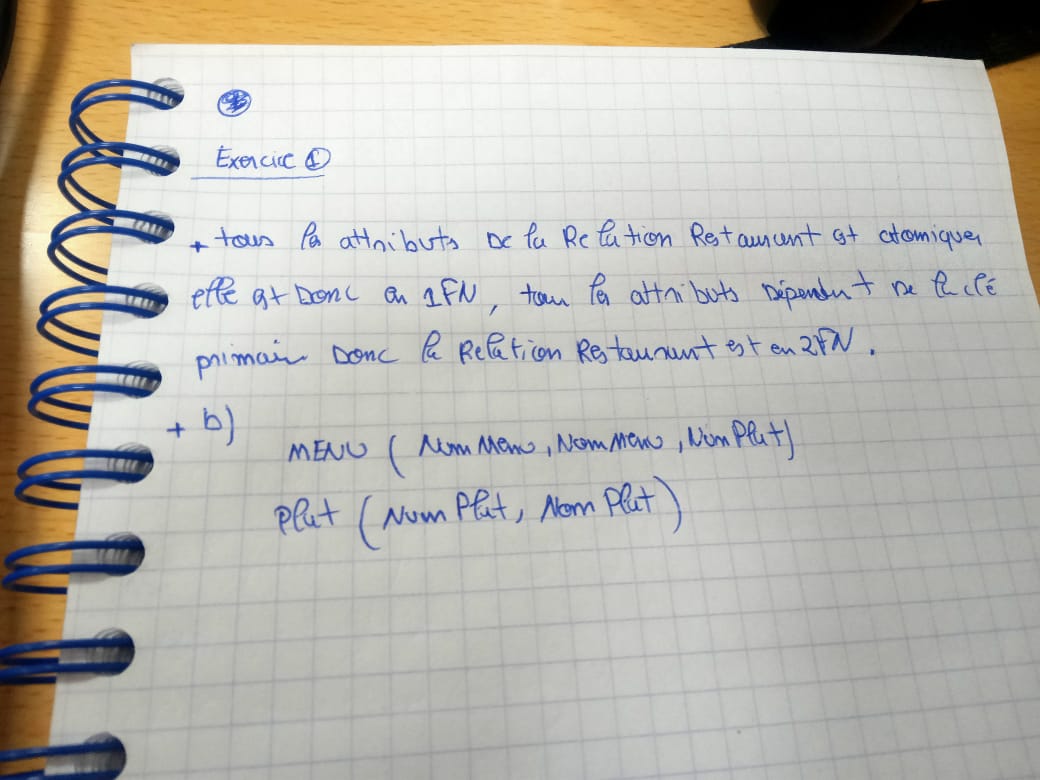 Exercice ①
+ tous les attributs de la Relation Restaurant est atomique,
elle est Donc en 1FN, tous les attributs dépendent de la clé
primair Donc la Relation Restaurant est en 2FN.
+ b)
MENU ( Num Menu, Nom Menu, Num Plat)
Plat ( Num Plat, Nom Plat )